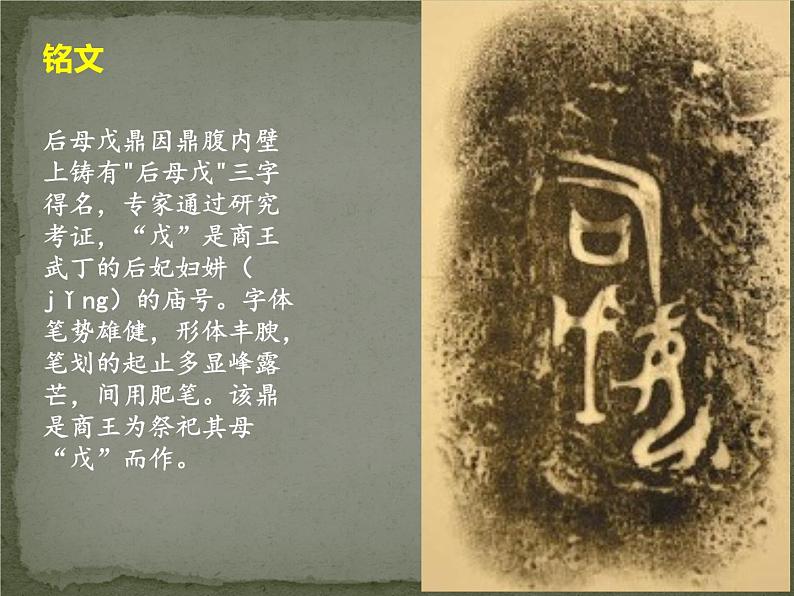 铭文
后母戊鼎因鼎腹内壁
上铸有"后母戊"三字
得名，专家通过研究
考证，“戊”是商王
武丁的后妃妇妌（
jǐng）的庙号。字体
笔势雄健，形体丰腴，
笔划的起止多显峰露
芒，间用肥笔。该鼎
是商王为祭祀其母
“戊”而作。
司母戊